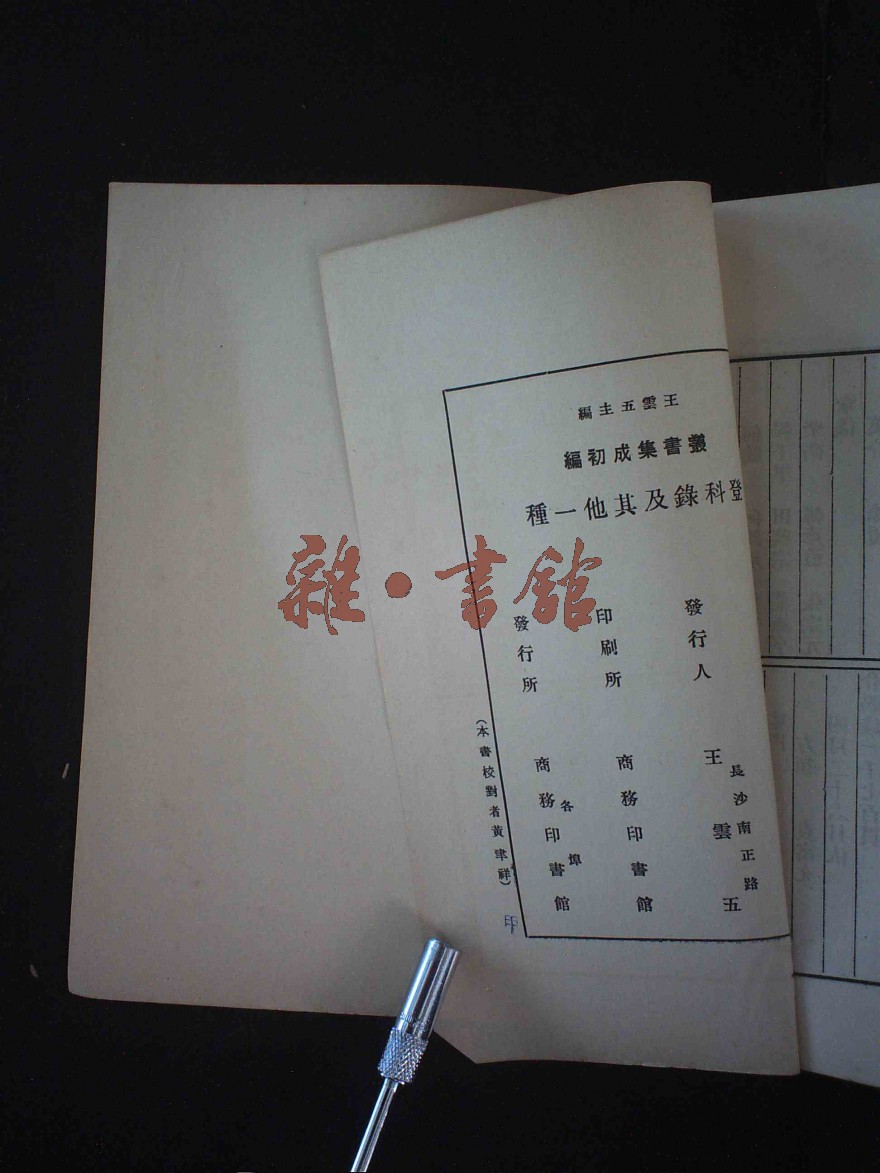 王雲五主編
叢書集成初編
登科錄及其他一種
發行人
王雲五
長沙南正路
印刷所
商務印書館
發行所
商務印書館
各埠
(本書校對者黃聿祥)
印
雜·書館